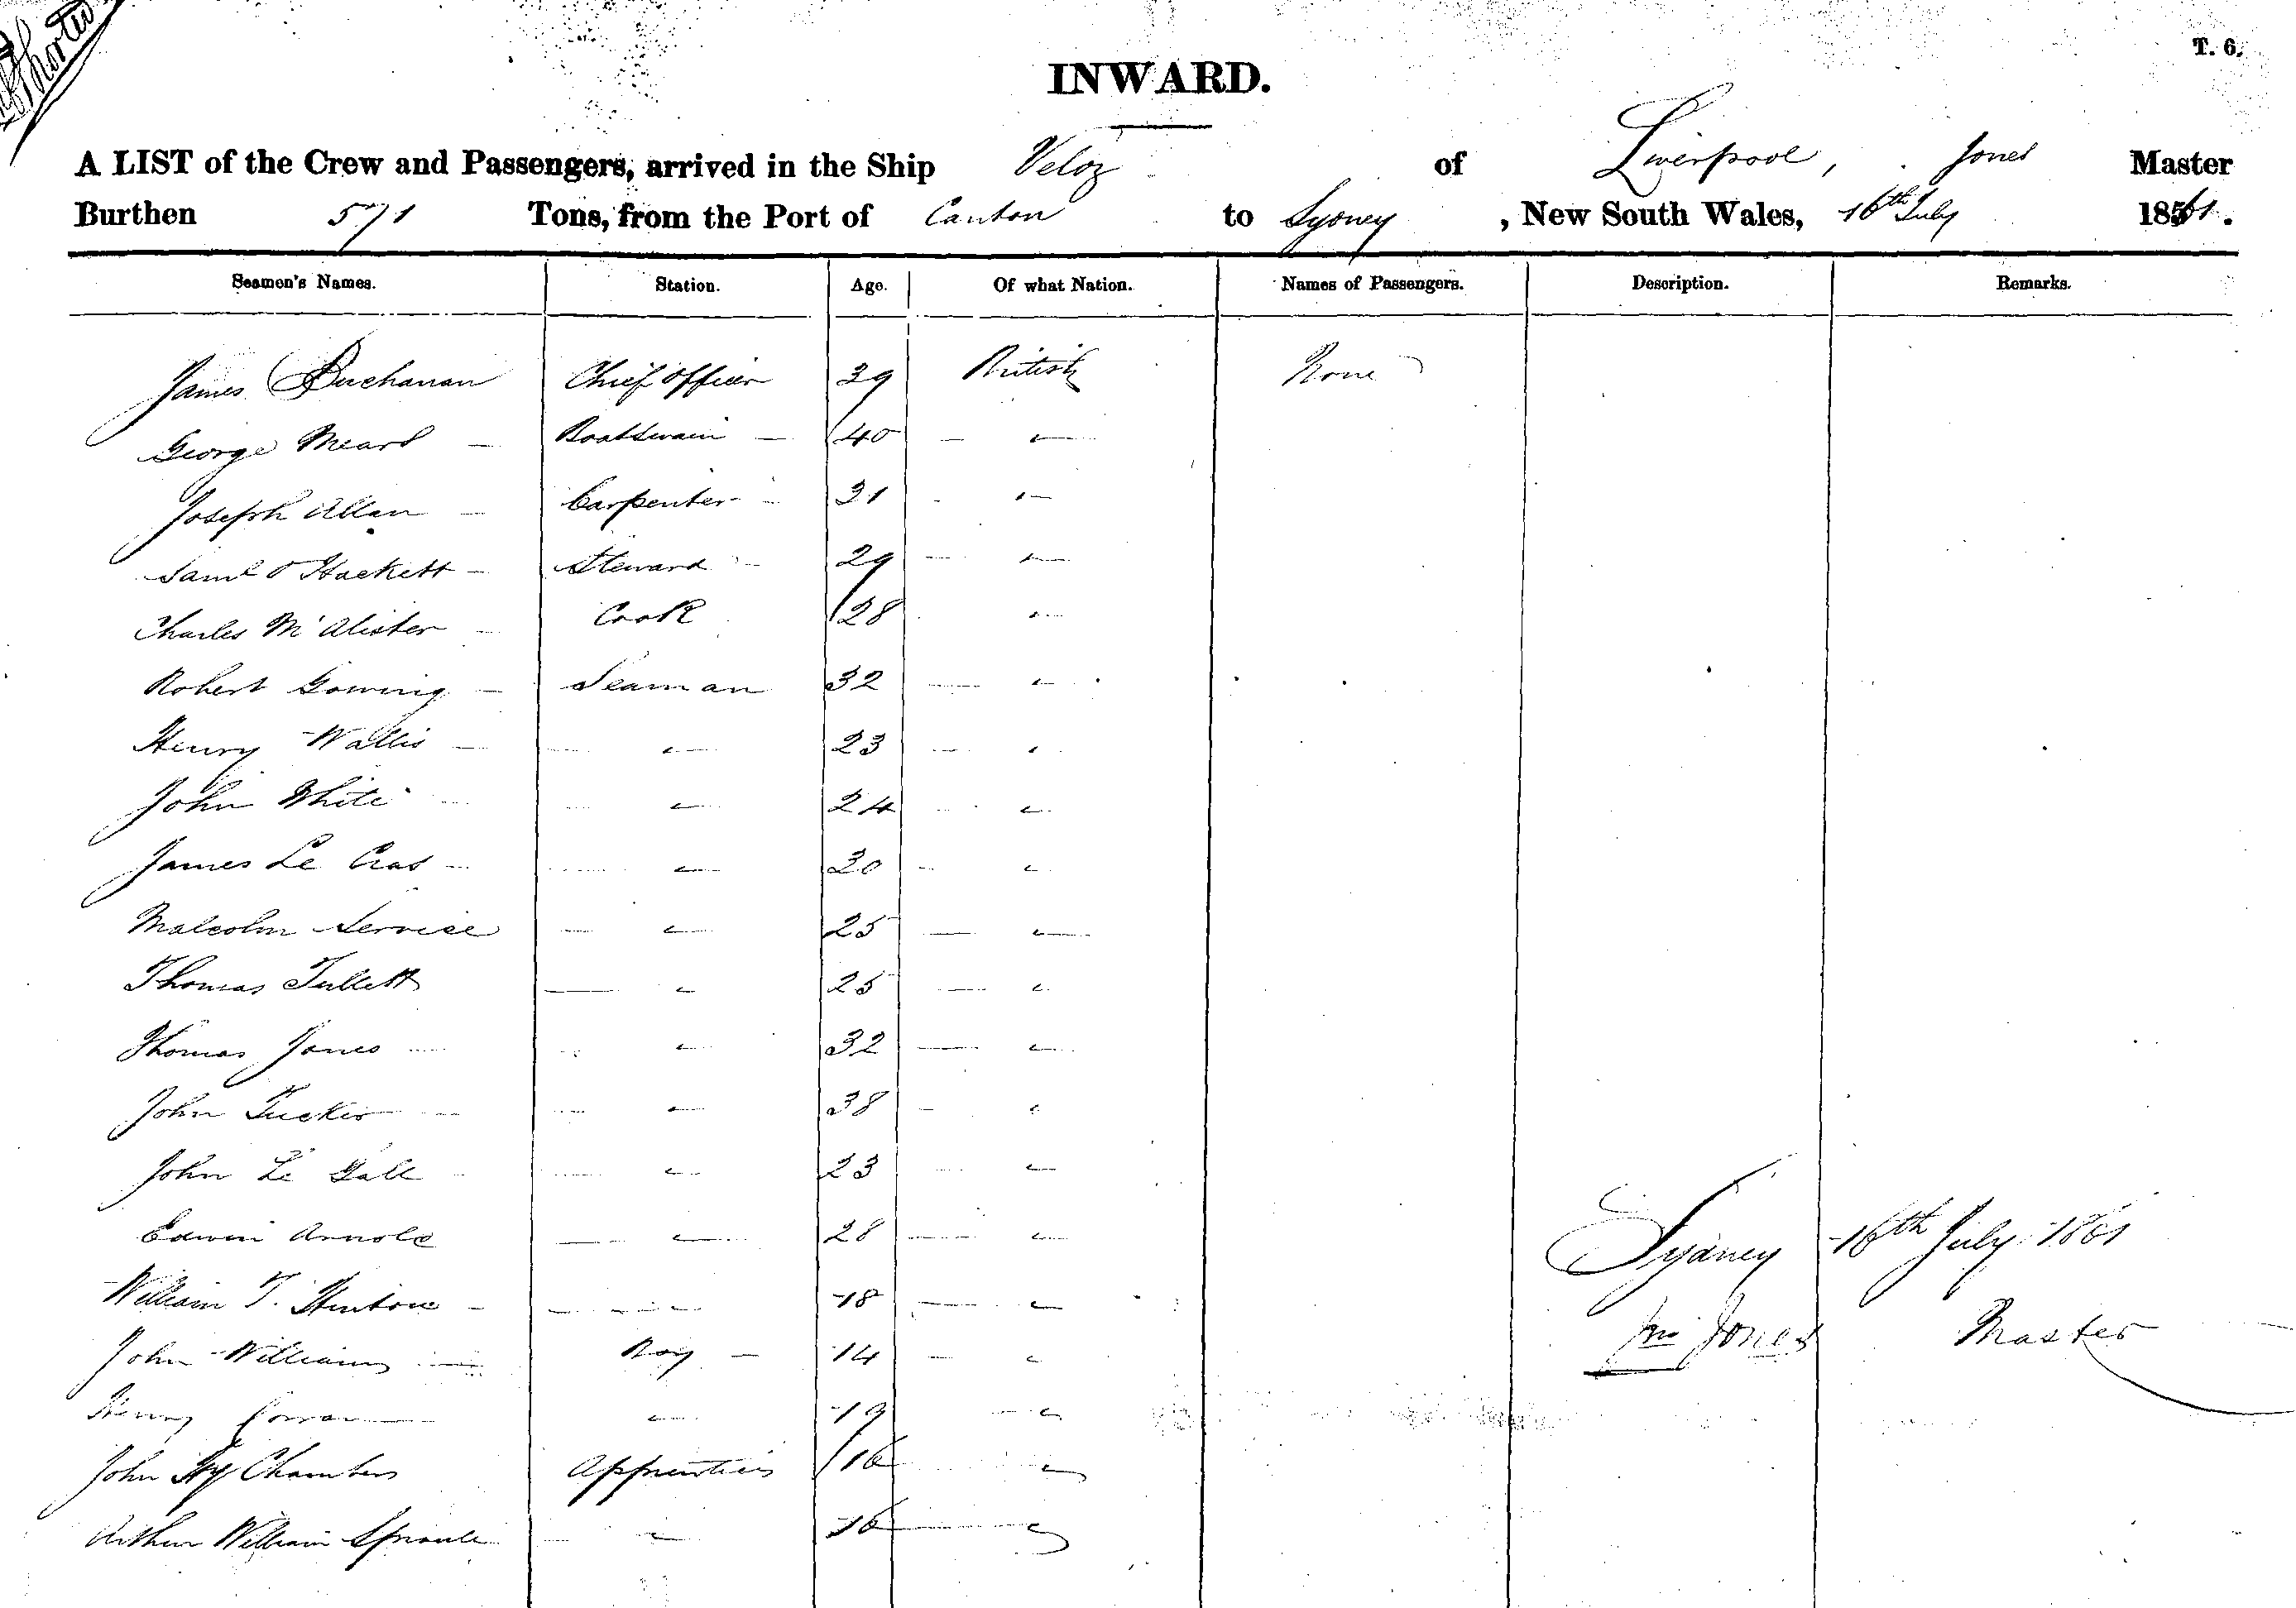 T. 6.
INWARD.
A LIST of the Crew and Passengers, arrived in the Ship Veloz of Liverpool, Jones Master
Burthen 571 Tons, from the Port of Canton to Sydney, New South Wales, 16th July 1861.
Seamen's Names. Station. Age. Of what Nation. Names of Passengers. Description. Remarks.
James Buchanan Chief Officer 39 British None
George Mears — Boatswain — 40 — "
Joseph Allan — Carpenter - 31 - "
Saml Hackett — Steward — 29 — "
Charles McAlister — Cook 28 "
Robert Gowing — Seaman 32 — "
Henry Wallis — — " 23 — "
John White — — " 24 — "
James Le Cras — — " 30 — "
Malcolm Service — " 25 — "
Thomas Tullett — " 25 — "
Thomas Jones — — " 32 — "
John Tucker — — " 38 — "
John Le Gall — — " 23 — "
Edwin Arnold — " 28 — "
William T. Hinton — — " 18 — "
John Williams — Boy — 14 — "
Henry — " 19 — "
John Hy Chambers Apprentices 16 — "
Arthur William Sproule — " 16 — "
Sydney 16th July 1861
Jno Jones Master